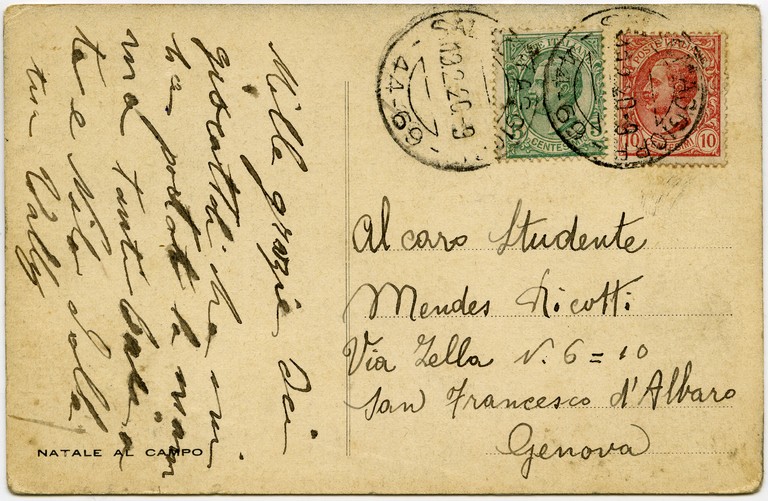 Mille grazie dei
giocattoli che mi
ha portato la mam
ma tanti baci a
te e Nilo dalla
tua Wally
NATALE AL CAMPO
13.2.20-9
44-69
POSTE ITALIANE
CENTESIMI
POSTE ITALIANE
10 CENTESIMI 10
Al caro Studente
Mendes Ricotti
Via Zella N. 6=10
San Francesco d'Albaro
Genova